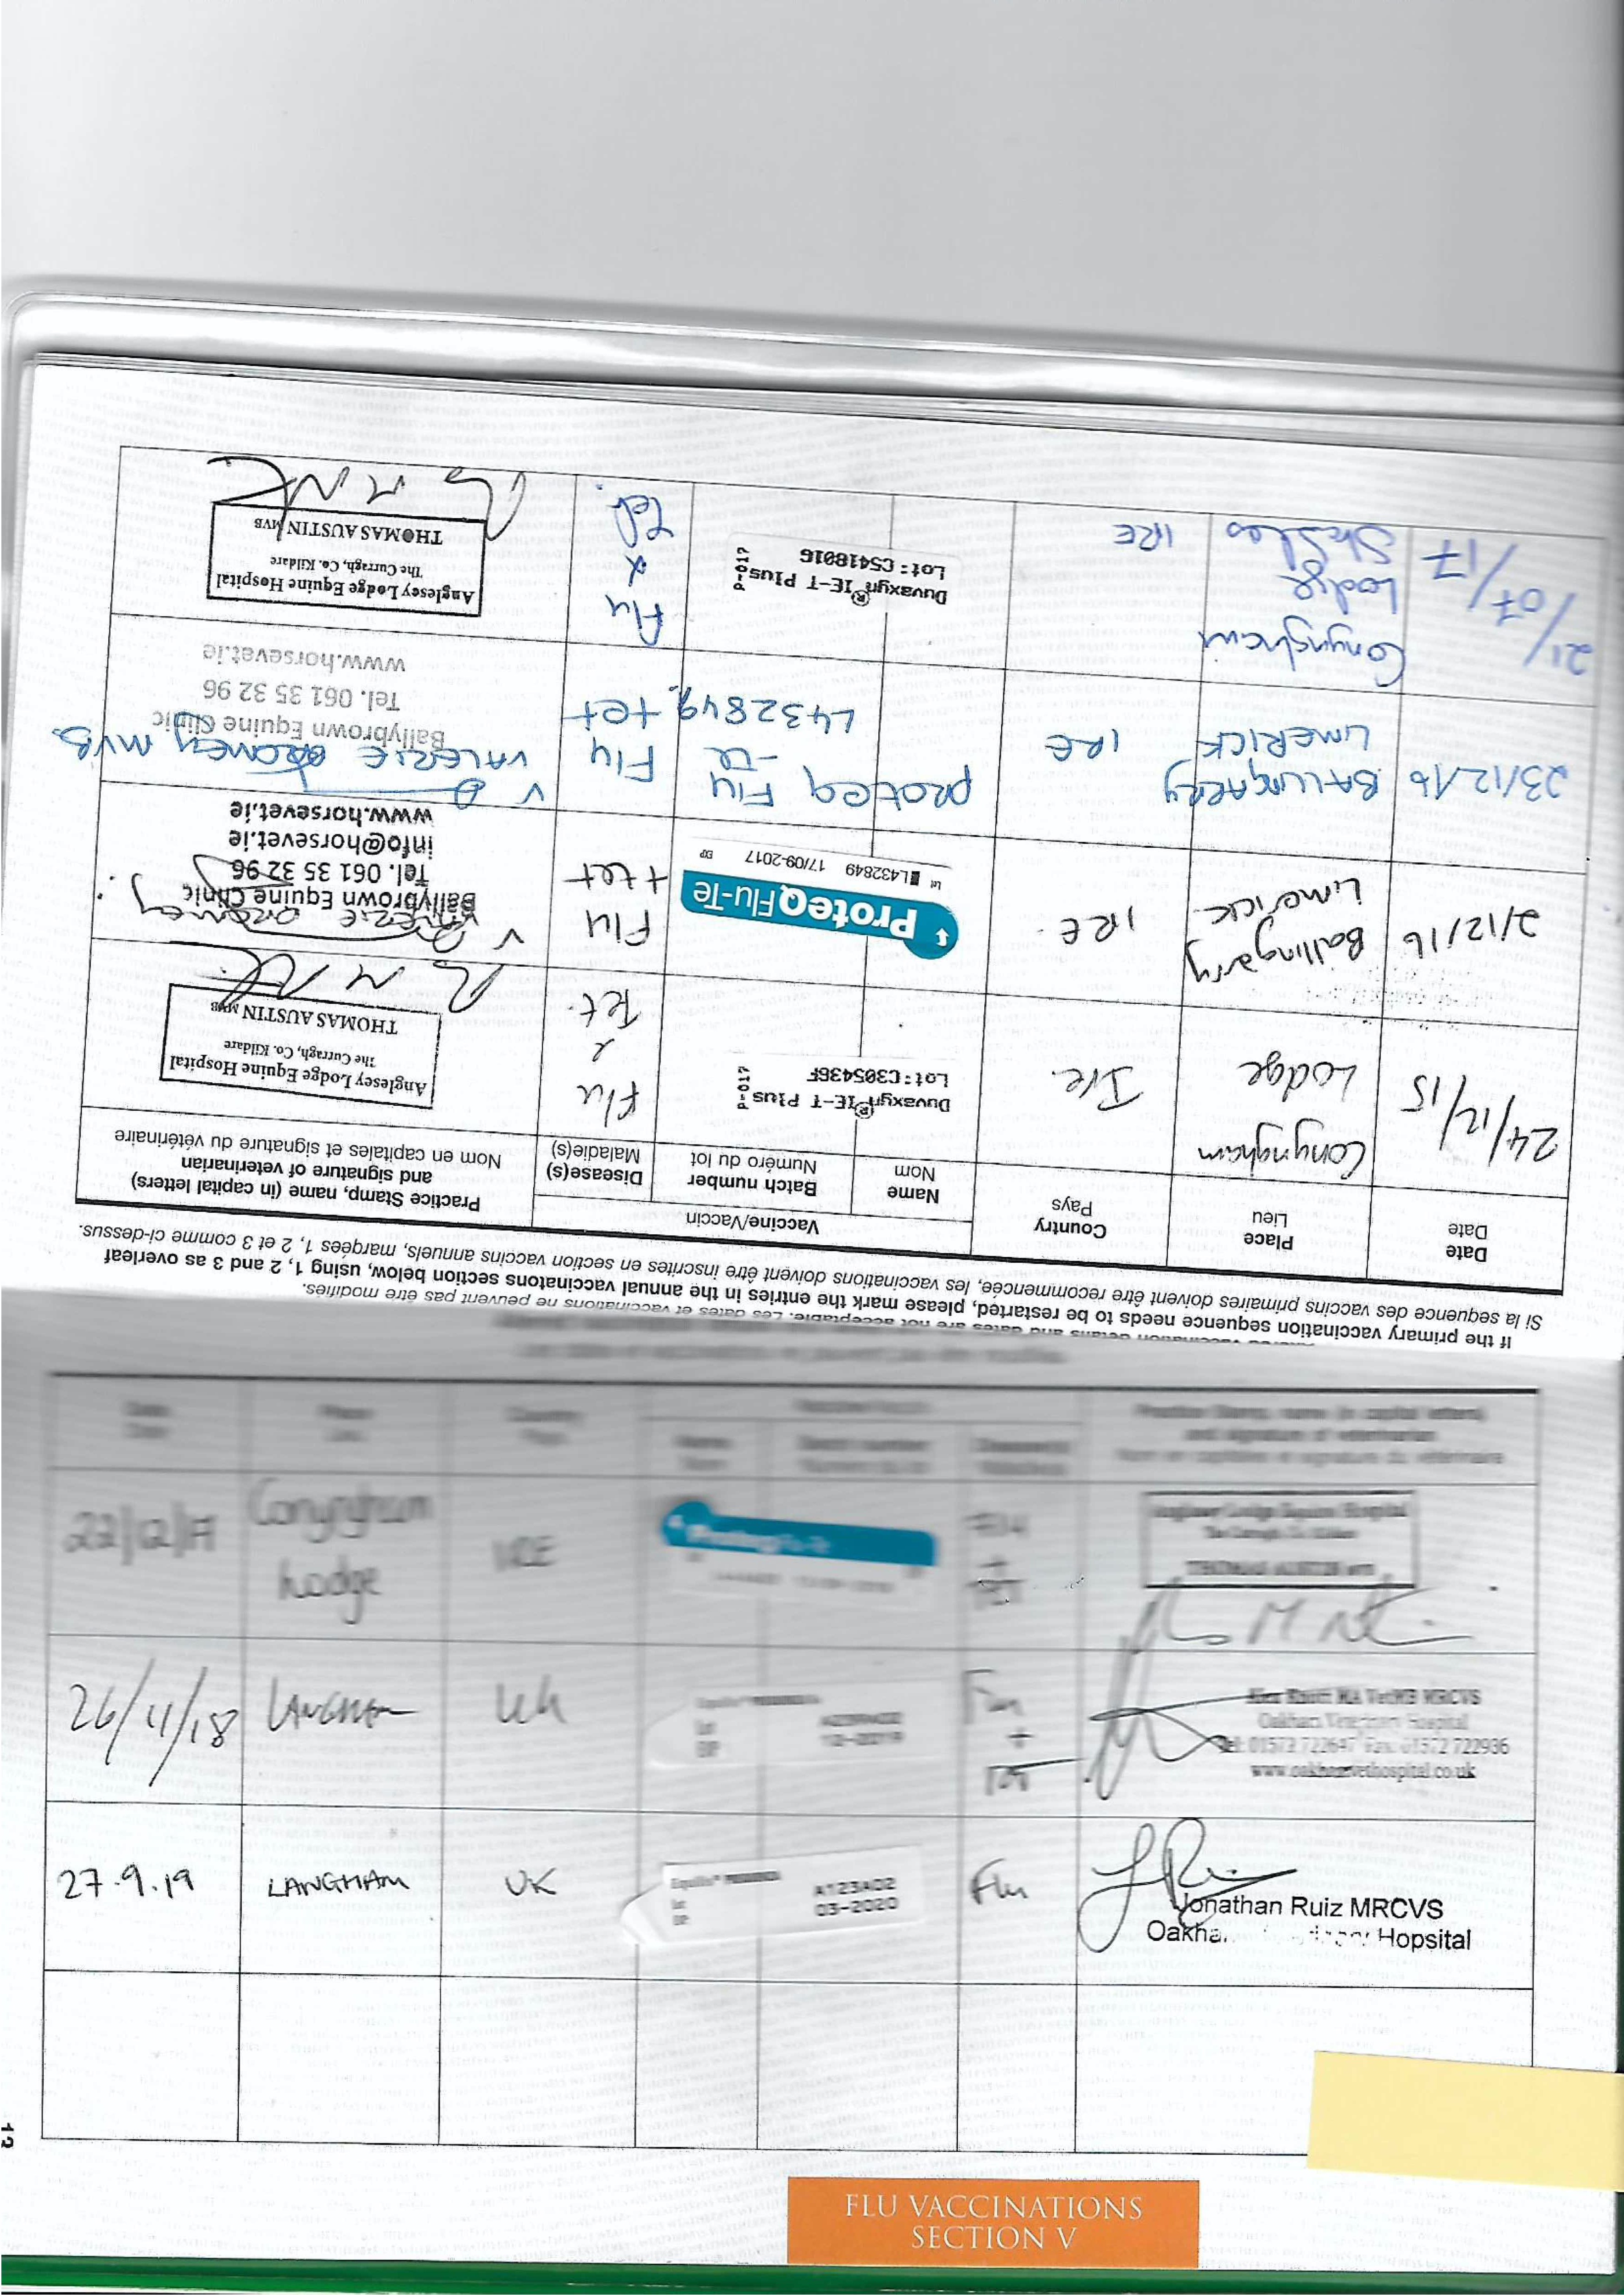 Altered vaccination details and dates are not acceptable. Les dates et vaccinations ne peuvent pas être modifiées.
If the primary vaccination sequence needs to be restarted, please mark the entries in the annual vaccinatons section below, using 1, 2 and 3 as overleaf
Si la sequence des vaccins primaires doivent être recommencée, les vaccinations doivent être inscrites en section vaccins annuels, margées 1, 2 et 3 comme ci-dessus.
Date
Date
Place
Lieu
Country
Pays
Vaccine/Vaccin
Name
Nom
Batch number
Numéro du lot
Disease(s)
Maladie(s)
Practice Stamp, name (in capital letters)
and signature of veterinarian
Nom en capitales et signature du vétérinaire
24/12/15
Conyngham
Lodge
Ire.
Duvaxyn® IE-T Plus
Lot: C305436F
P-017
Flu
&
Tet.
Anglesey Lodge Equine Hospital
The Curragh, Co. Kildare
THOMAS AUSTIN MVB
2/12/16
Ballingarry
Limerick
IRE.
ProteqFlu-Te
Lot L432849 17/09-2017 EXP
Flu
+tet
Ballybrown Equine Clinic
Tel. 061 35 32 96
info@horsevet.ie
www.horsevet.ie
23/12/16
BALLINGARRY
LIMERICK
IRE
proteq Flu
-te
L432849
Flu
+tet
VALERIE MVB.
Ballybrown Equine Clinic
Tel. 061 35 32 96
www.horsevet.ie
21/07/17
Conyngham
Lodge
Stables
IRE
Duvaxyn® IE-T Plus
Lot: C541801G
P-017
Flu
&
Tet.
Anglesey Lodge Equine Hospital
The Curragh, Co. Kildare
THOMAS AUSTIN MVB
22/12/17
Conyngham
Lodge
IRE
Anglesey Lodge Equine Hospital
The Curragh, Co. Kildare
THOMAS AUSTIN MVB
26/11/18
LANGHAM
UK
12-2019
Flu
+
Tet
MA VetMB MRCVS
Oakham Veterinary Hospital
Tel: 01572 722647 Fax: 01572 722936
www.oakhamvethospital.co.uk
27.9.19
LANGHAM
UK
A123A02
03-2020
Flu
Jonathan Ruiz MRCVS
Hopsital
FLU VACCINATIONS
SECTION V